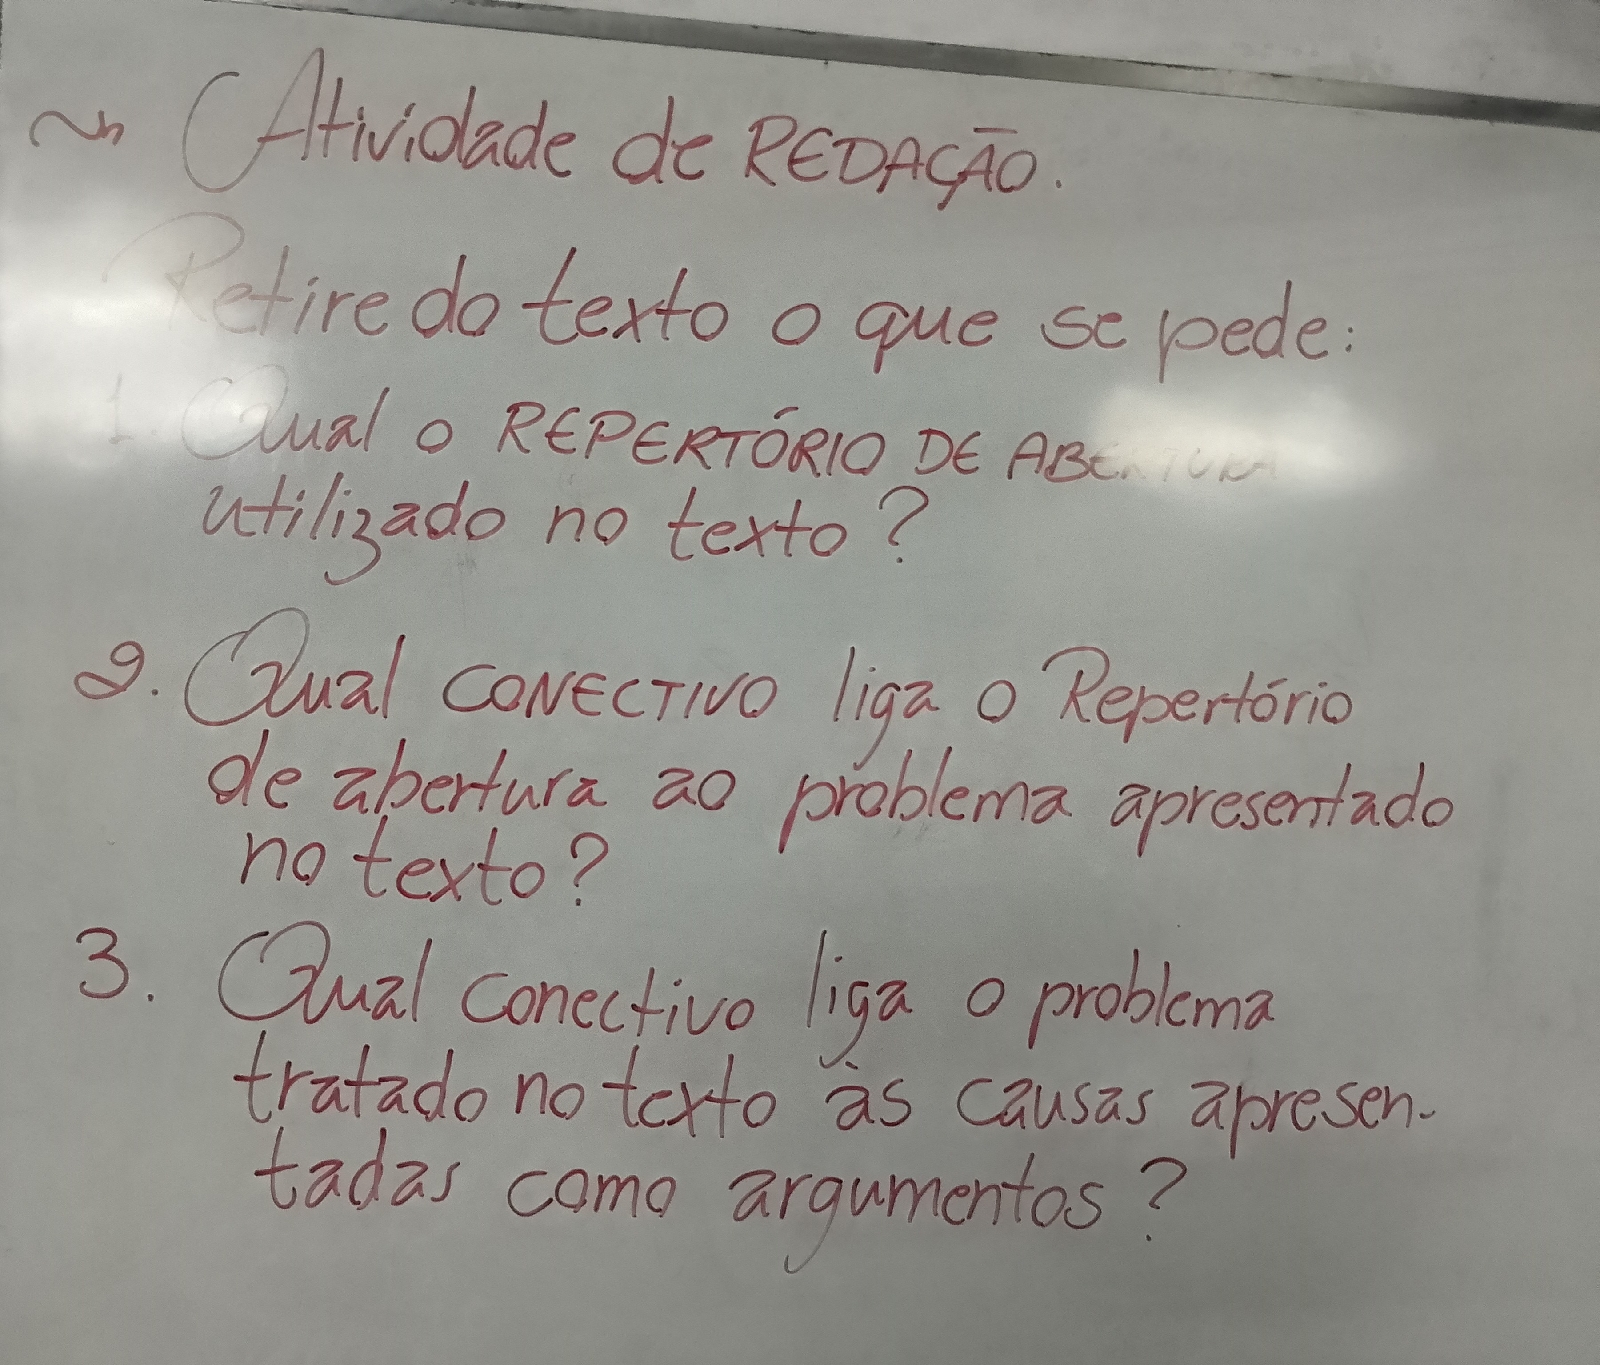 Atividade de REDAÇÃO.
Retire do texto o que se pede:
1. Qual o REPERTÓRIO DE ABERTURA
utilizado no texto?
2. Qual CONECTIVO liga o Repertório
de abertura ao problema apresentado
no texto?
3. Qual conectivo liga o problema
tratado no texto às causas apresen-
tadas como argumentos?